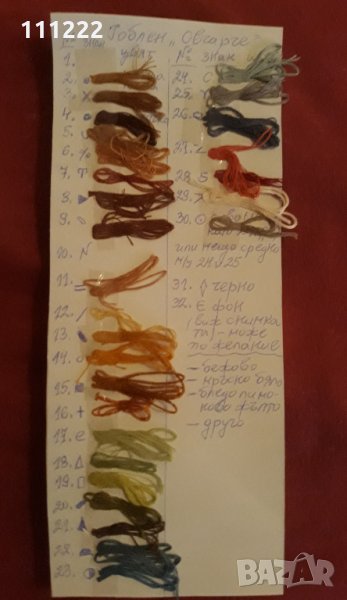 111222
Гоблен „Овчарче
№ знак
цвят
№ знак
1.
2.
3. x
4.
5.
6. %
7. т
8.
9.
10. N
11. =
12. /
13.
14. o
15. ■
16. +
17. e
18. Δ
19. □
20.
21.
22.
23.
24. C
25. Y
26.
27. <
28. S
29. >
30.
или нещо средно
м/у 24 и 25
31. черно
32. Є фон
(виж снимка
та) - може
по желание
- бежово
- мръсно бяло
- бледо ли мо-
ново жълто
- друго
BAZAR